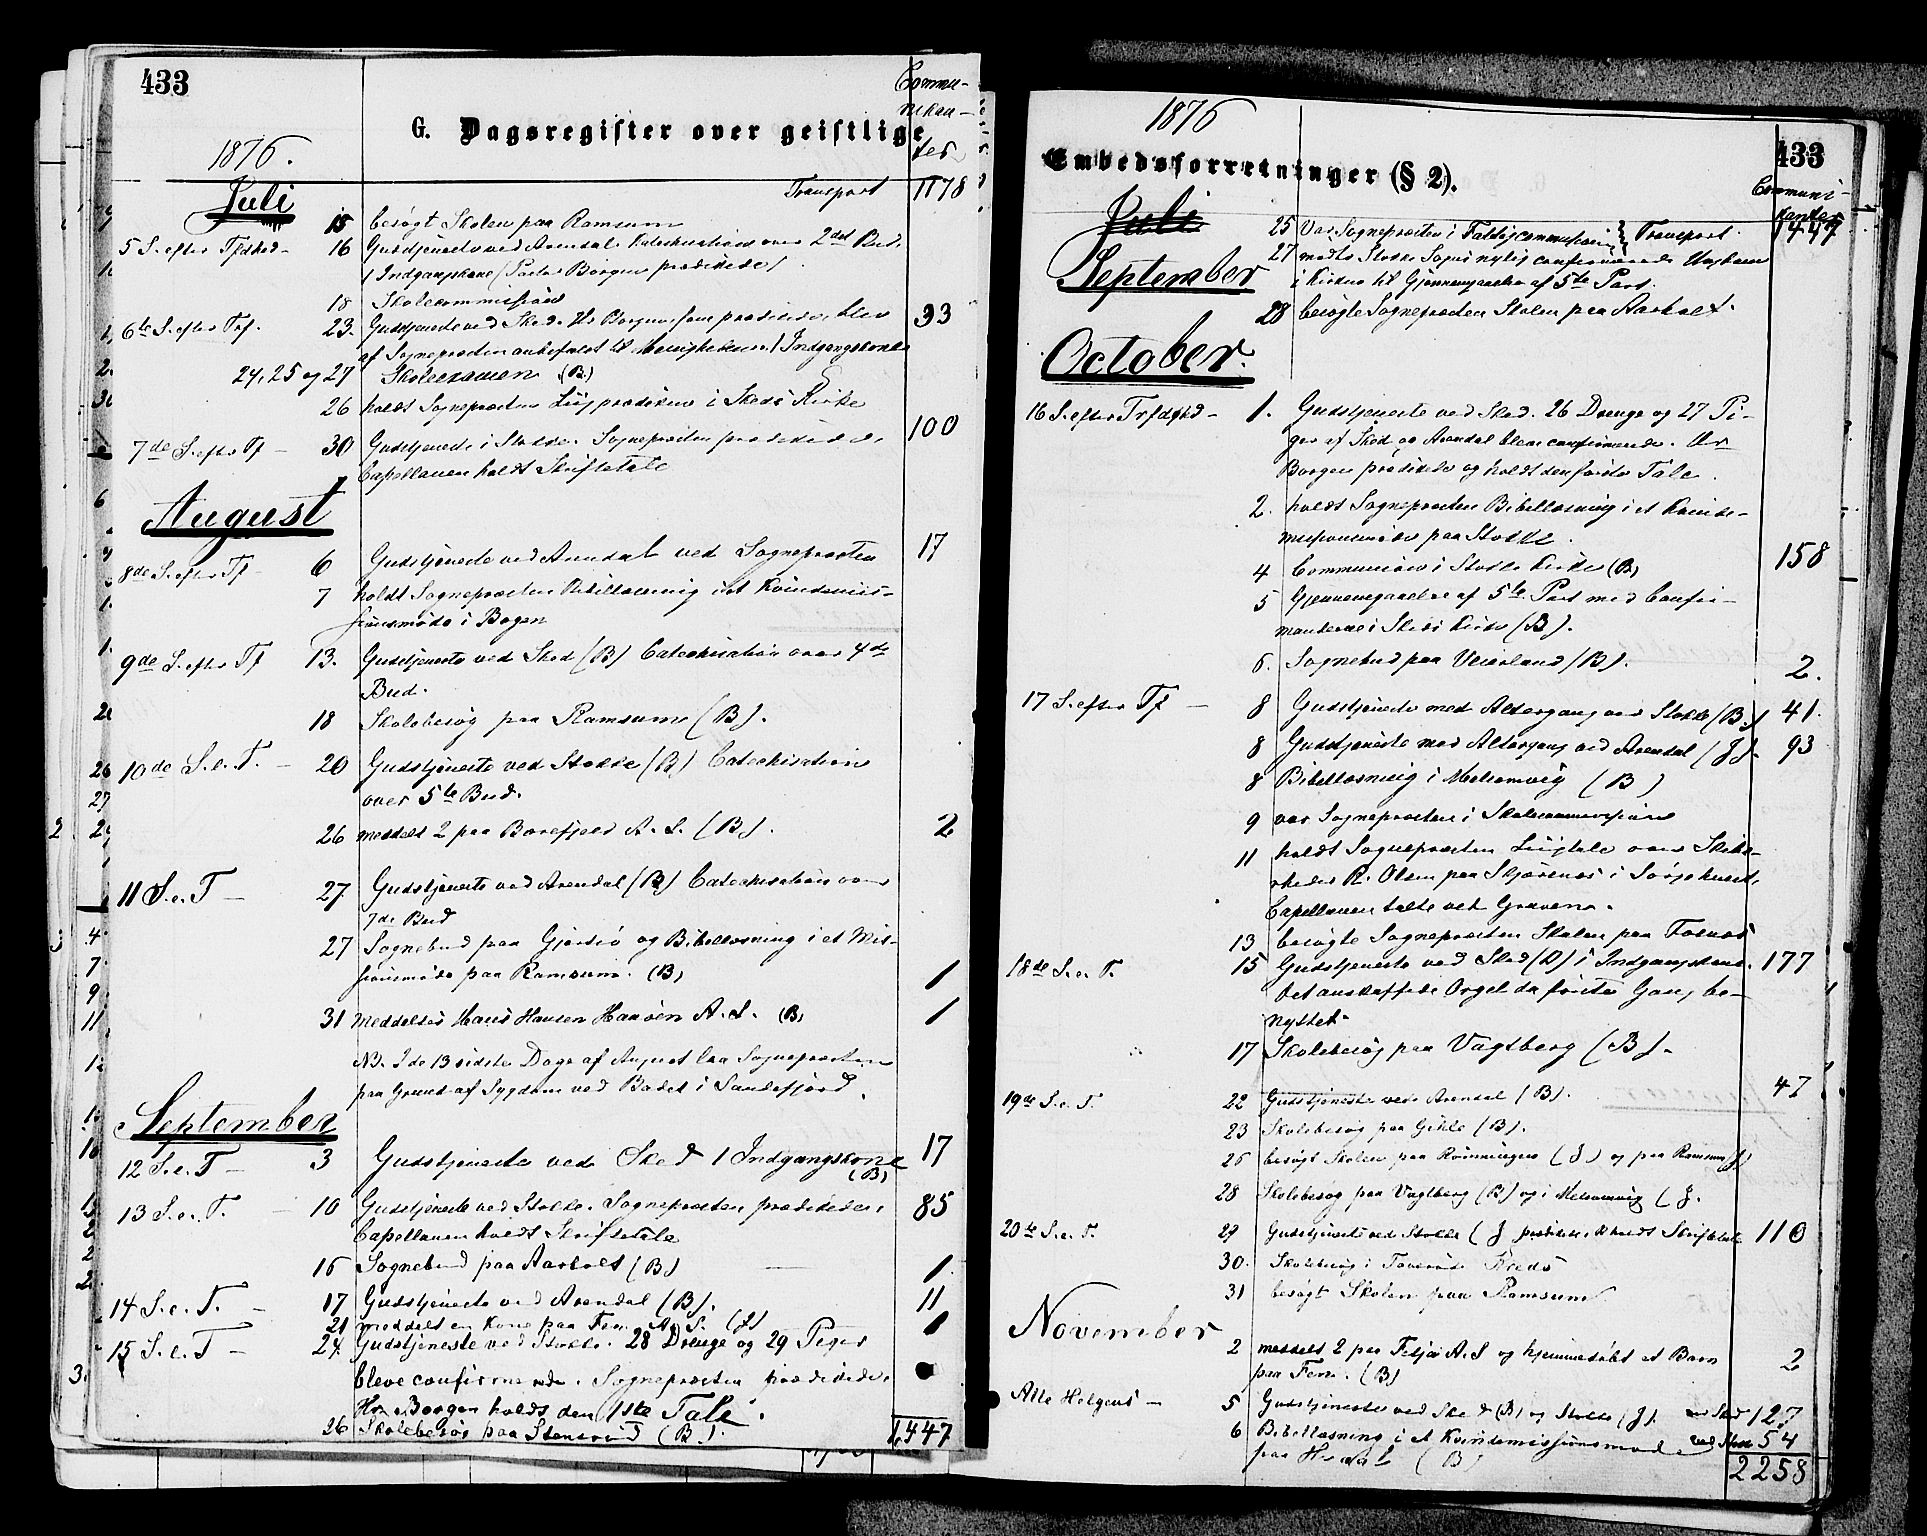 433
Commu-
nikan-
G. Dagsregister over geistlige
ter
1876.
Transport 1178
Juli
15 besøgt Skolen paa Ramsum
5 S. efter 16 Gudstjeneste ved Arendal Catechisation over 2det Bud.
1 Indgangskone (Pastor Borgen prædikede)
18 Skolecommission
6te S. efter Trf. 23. Gudstjeneste ved Sked. Hr Borgen, som prædikede, blev 33
af Sognepræsten anbefalet til Menigheden. 1 Indgangskone
24, 25 og 27 Skoleexamen (B.)
26 holdt Sognepræsten Liigprædiken i Skeds Kirke
7de S. efter Tf - 30 Gudstjeneste i Stokke. Sognepræsten prædikede. 100
Capellanen holdt Skriftetale
August
8de S. efter Tf - 6 Gudstjeneste ved Arendal ved Sognepræsten 17
7 holdt Sognepræsten Bibellæsning i et Kvindemis-
sionsmøde i Bogen
9de S. efter Tf 13. Gudstjeneste ved Sked (B) Catechisation over 4de
Bud.
18 Skolebesøg paa Ramsum (B).
10de S. e. T. - 20 Gudstjeneste ved Stokke (B) Catechisation
over 5te Bud.
26 meddelt 2 paa Borrefjeld A. S. (B). 2
11 S. e. T - 27. Gudstjeneste ved Arendal (B) Catechisation over
7de Bud
27 Sognebud paa Gjersø og Bibellæsning i et Mis-
sionsmøde paa Ramsum. (B) 1
31 meddeltes Hans Hansen A. S. (B) 1
NB. I de 13 sidste Dage af August laa Sognepræsten
paa Grund af Sygdom ved Badet i Sandefjord.
September
12 S. e. T - 3 Gudstjeneste ved Sked 1 Indgangskone 17
(B)
13 S. e. T. - 10 Gudstjeneste ved Stokke. Sognepræsten prædikede. 85
Capellanen holdt Skriftetale
16 Sognebud paa Aarholt (B) 1.
14 S. e. T. - 17 Gudstjeneste ved Arendal (B). 11
21 meddelt en Kone paa Fem A. S. (J) 1
15 S. e. T - 24. Gudstjeneste ved Stokke. 28 Drenge og 29 Piger
bleve confirmerede. Sognepræsten prædikede.
Hr. Borgen holdt den 1ste Tale.
26 Skolebesøg paa Stensrud (B). 1,447
1876
433
Embedsforretninger (§ 2).
Communi-
kanter
Juli
25 Var Sognepræsten i Transport. 1447
September
27 mødte Stokke Sogns nylig confirmerede Ungdom
i Kirken til Gjennemgaaelse af 5te Part.
28 besøgte Sognepræsten Skolen paa Aarholt.
October.
16 S. efter - 1. Gudstjeneste ved Sked. 26 Drenge og 27 Pi-
ger af Sked og Arendal bleve confirmerede. Hr
Borgen prædikede og holdt den første Tale.
2. holdt Sognepræsten Bibellæsning i et Kvinde-
missionsmøde paa Stokke.
4 Communion i Stokke Kirke (B) 158
5 Gjennemgaaelse af 5te Part med Confir-
manderne i Skeds Kirke (B).
6. Sognebud paa Veierland (B). 2.
17 S. efter Tf - 8 Gudstjeneste med Altergang ved Stokke (B.) 41.
8 Gudstjeneste med Altergang ved Arendal (J). 93
8 Bibellæsning i Melsomvig (B)
9 var Sognepræsten i Skolecommission
11 holdt Sognepræsten Liigtale over Skibs-
rheder R. Olsen paa i Sørgehuset,
Capellanen talte ved Graven.
13 besøgte Sognepræsten Skolen paa Fosnæs
18de S. e. T. 15 Gudstjeneste ved Sked (B) 1 Indgangskone. 177
Det anskaffede Orgel da første Gang be-
nyttet.
17 Skolebesøg paa Vagtberg (B).
19de S. e. T. 22 Gudstjeneste ved Arendal (B). 47
23 Skolebesøg paa Gihle (B).
26 besøgt Skolen paa Rønningen (J) og paa Ramsum (J)
28 Skolebesøg paa Vagtberg (B) og i Melsomvig (J.
20de S. e. T. 29 Gudstjeneste ved Stokke (J prædikede, B holdt Skriftetale 110
30. Skolebesøg i Kreds
31 besøgt Skolen paa Ramsum
November
2 meddelt 2 paa A. S og hjemmedøbt et Barn 2
paa Fem. (B)
Alle Helgens - 5 Gudstjeneste ved Sked (B) og Stokke (J). ved Sked 127
6 Bibellæsning i et Kvindemissionsmøde ved Stok 54
paa (B) 2258